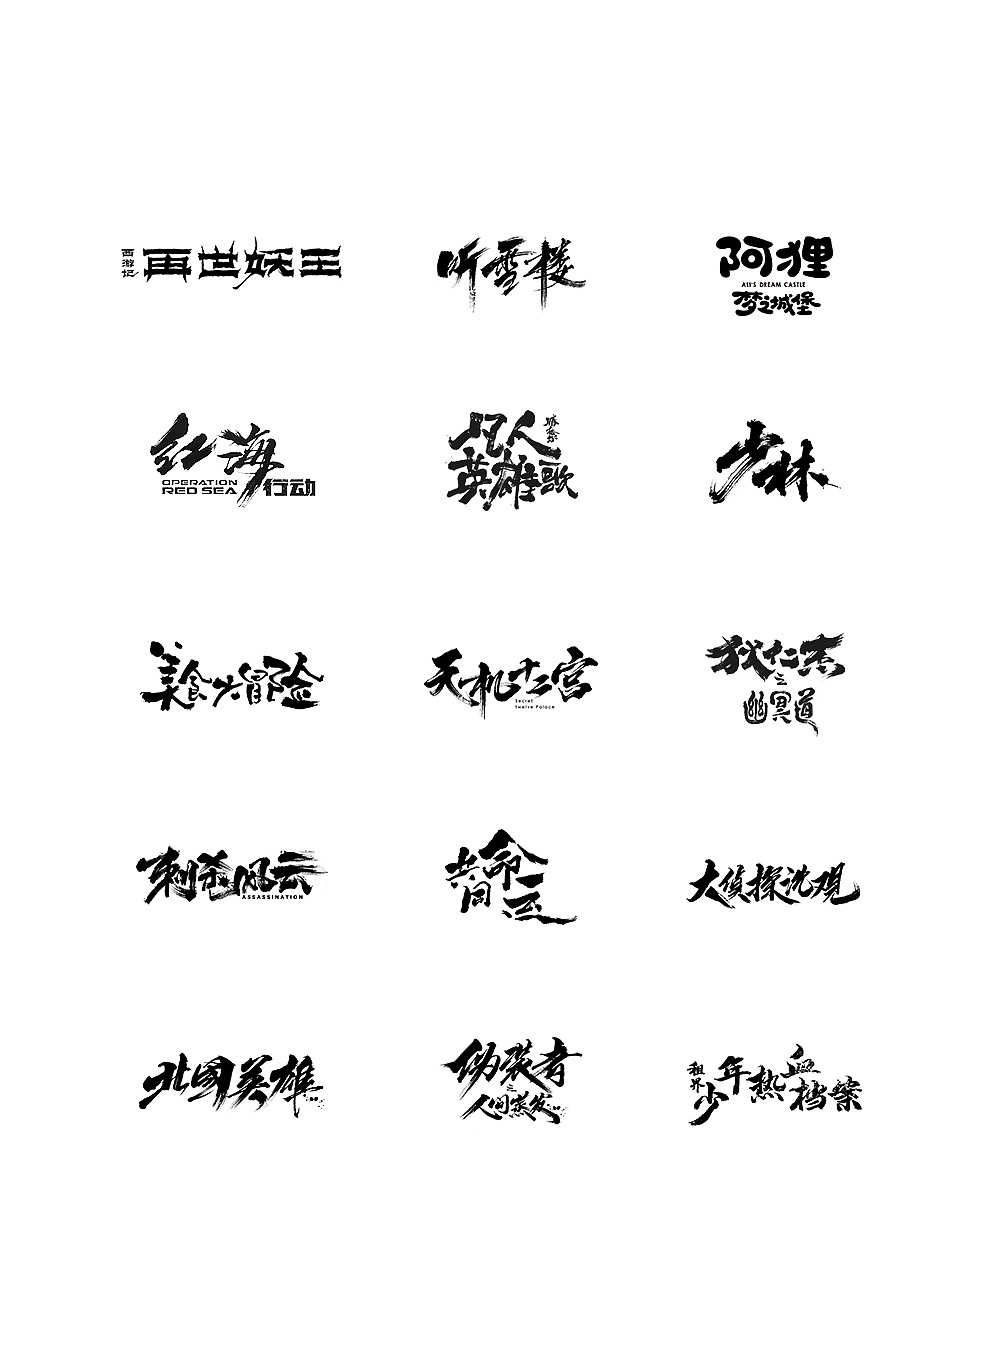 西游记
再世妖王
听雪楼
阿狸
ALI'S DREAM CASTLE
梦之城堡
红海
OPERATION
RED SEA
行动
凡人
英雄歌
少林
美食大冒险
天机十二宫
Secret
twelve Palace
狄仁杰
之
幽冥道
刺杀风云
ASSASSINATION
共同命运
大侦探沈观
北国英雄
伪装者
之
人间蒸发
租界
少年热血档案